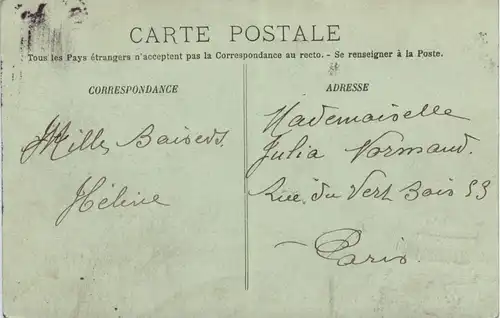 CARTE POSTALE
Tous les Pays étrangers n'acceptent pas la Correspondance au recto. - Se renseigner à la Poste.
CORRESPONDANCE
Mille Baisers.
Hélène
ADRESSE
Mademoiselle
Julia Normand.
Rue du Vert Bois 53
Paris.